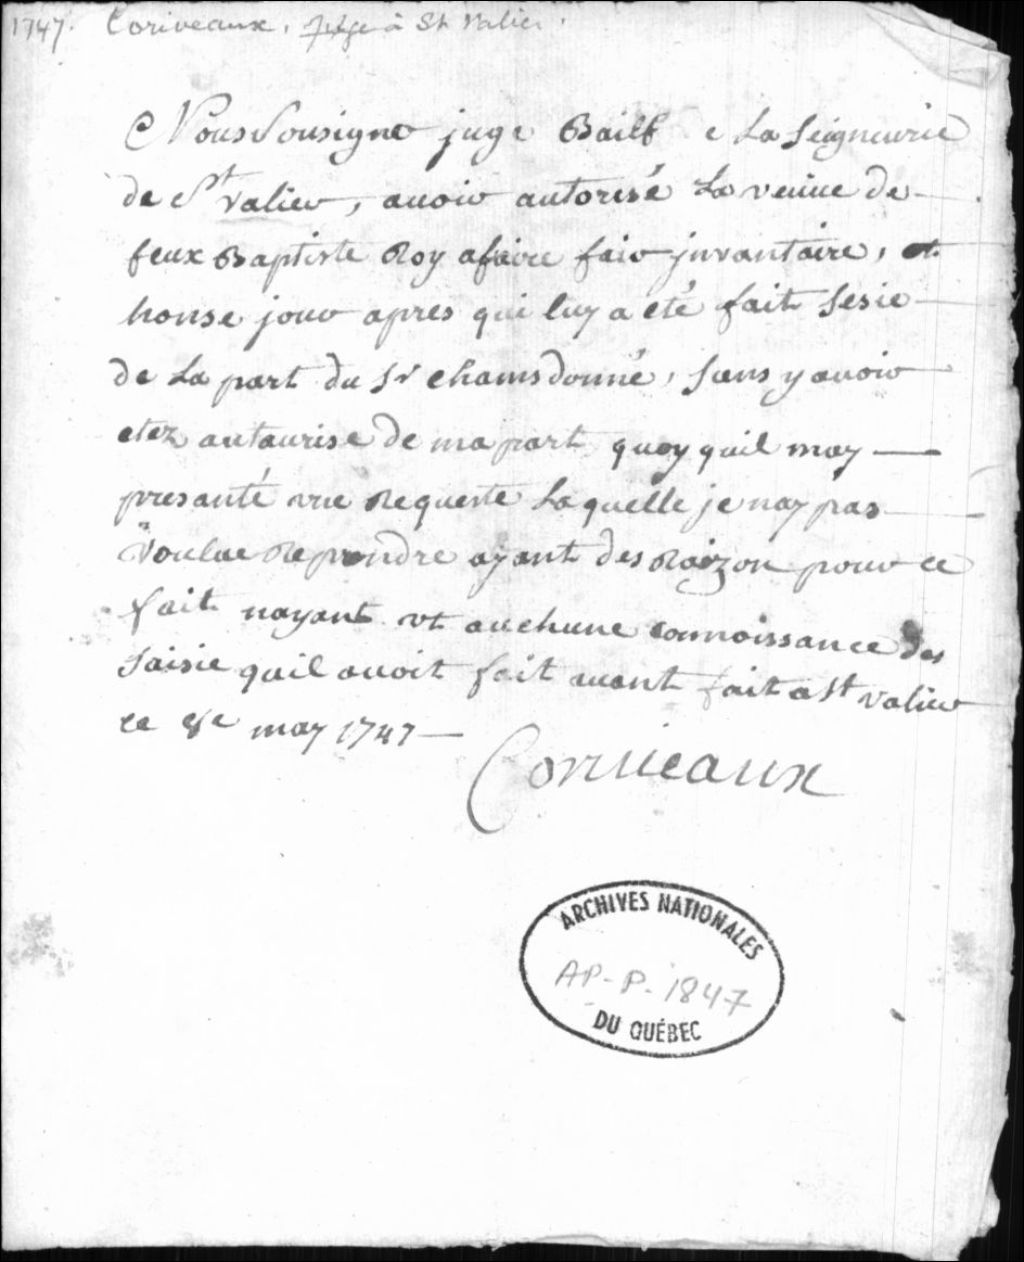 1747. Coriveaux, juge à St Valier.
Nous Sousigne juge Bailf e La Seigneurie
de St valier, auoir autorisé La veuue de
feux Baptiste Roy afaire fair jnvantaire, et
honse jour apres qui luy a eté fait Sesie
de La part du Sr chamsdonné, sans y auoir
etez autaurise de ma part quoy quil may
presanté vne Requeste Laquelle je nay pas
voulue Reprendre ayant des Raizon pour ce
fait nayant vt auchune connoissance des
saisie quil auoit fait auant fait a St valier
ce 8e may 1747
Corriueaux
ARCHIVES NATIONALES
AP-P-1847
DU QUÉBEC